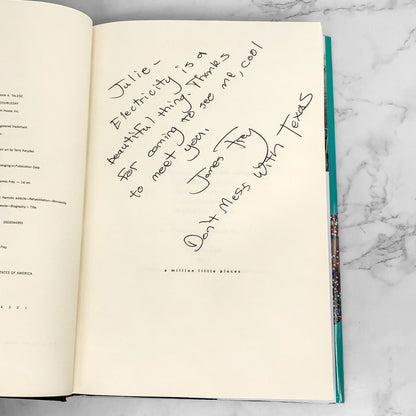 Julie-
Electricity is a
beautiful thing. Thanks
for coming to see me, cool
to meet you,
James Frey
Don't Mess With Texas
a million little pieces
NAN A. TALESE
DOUBLEDAY
STATES OF AMERICA